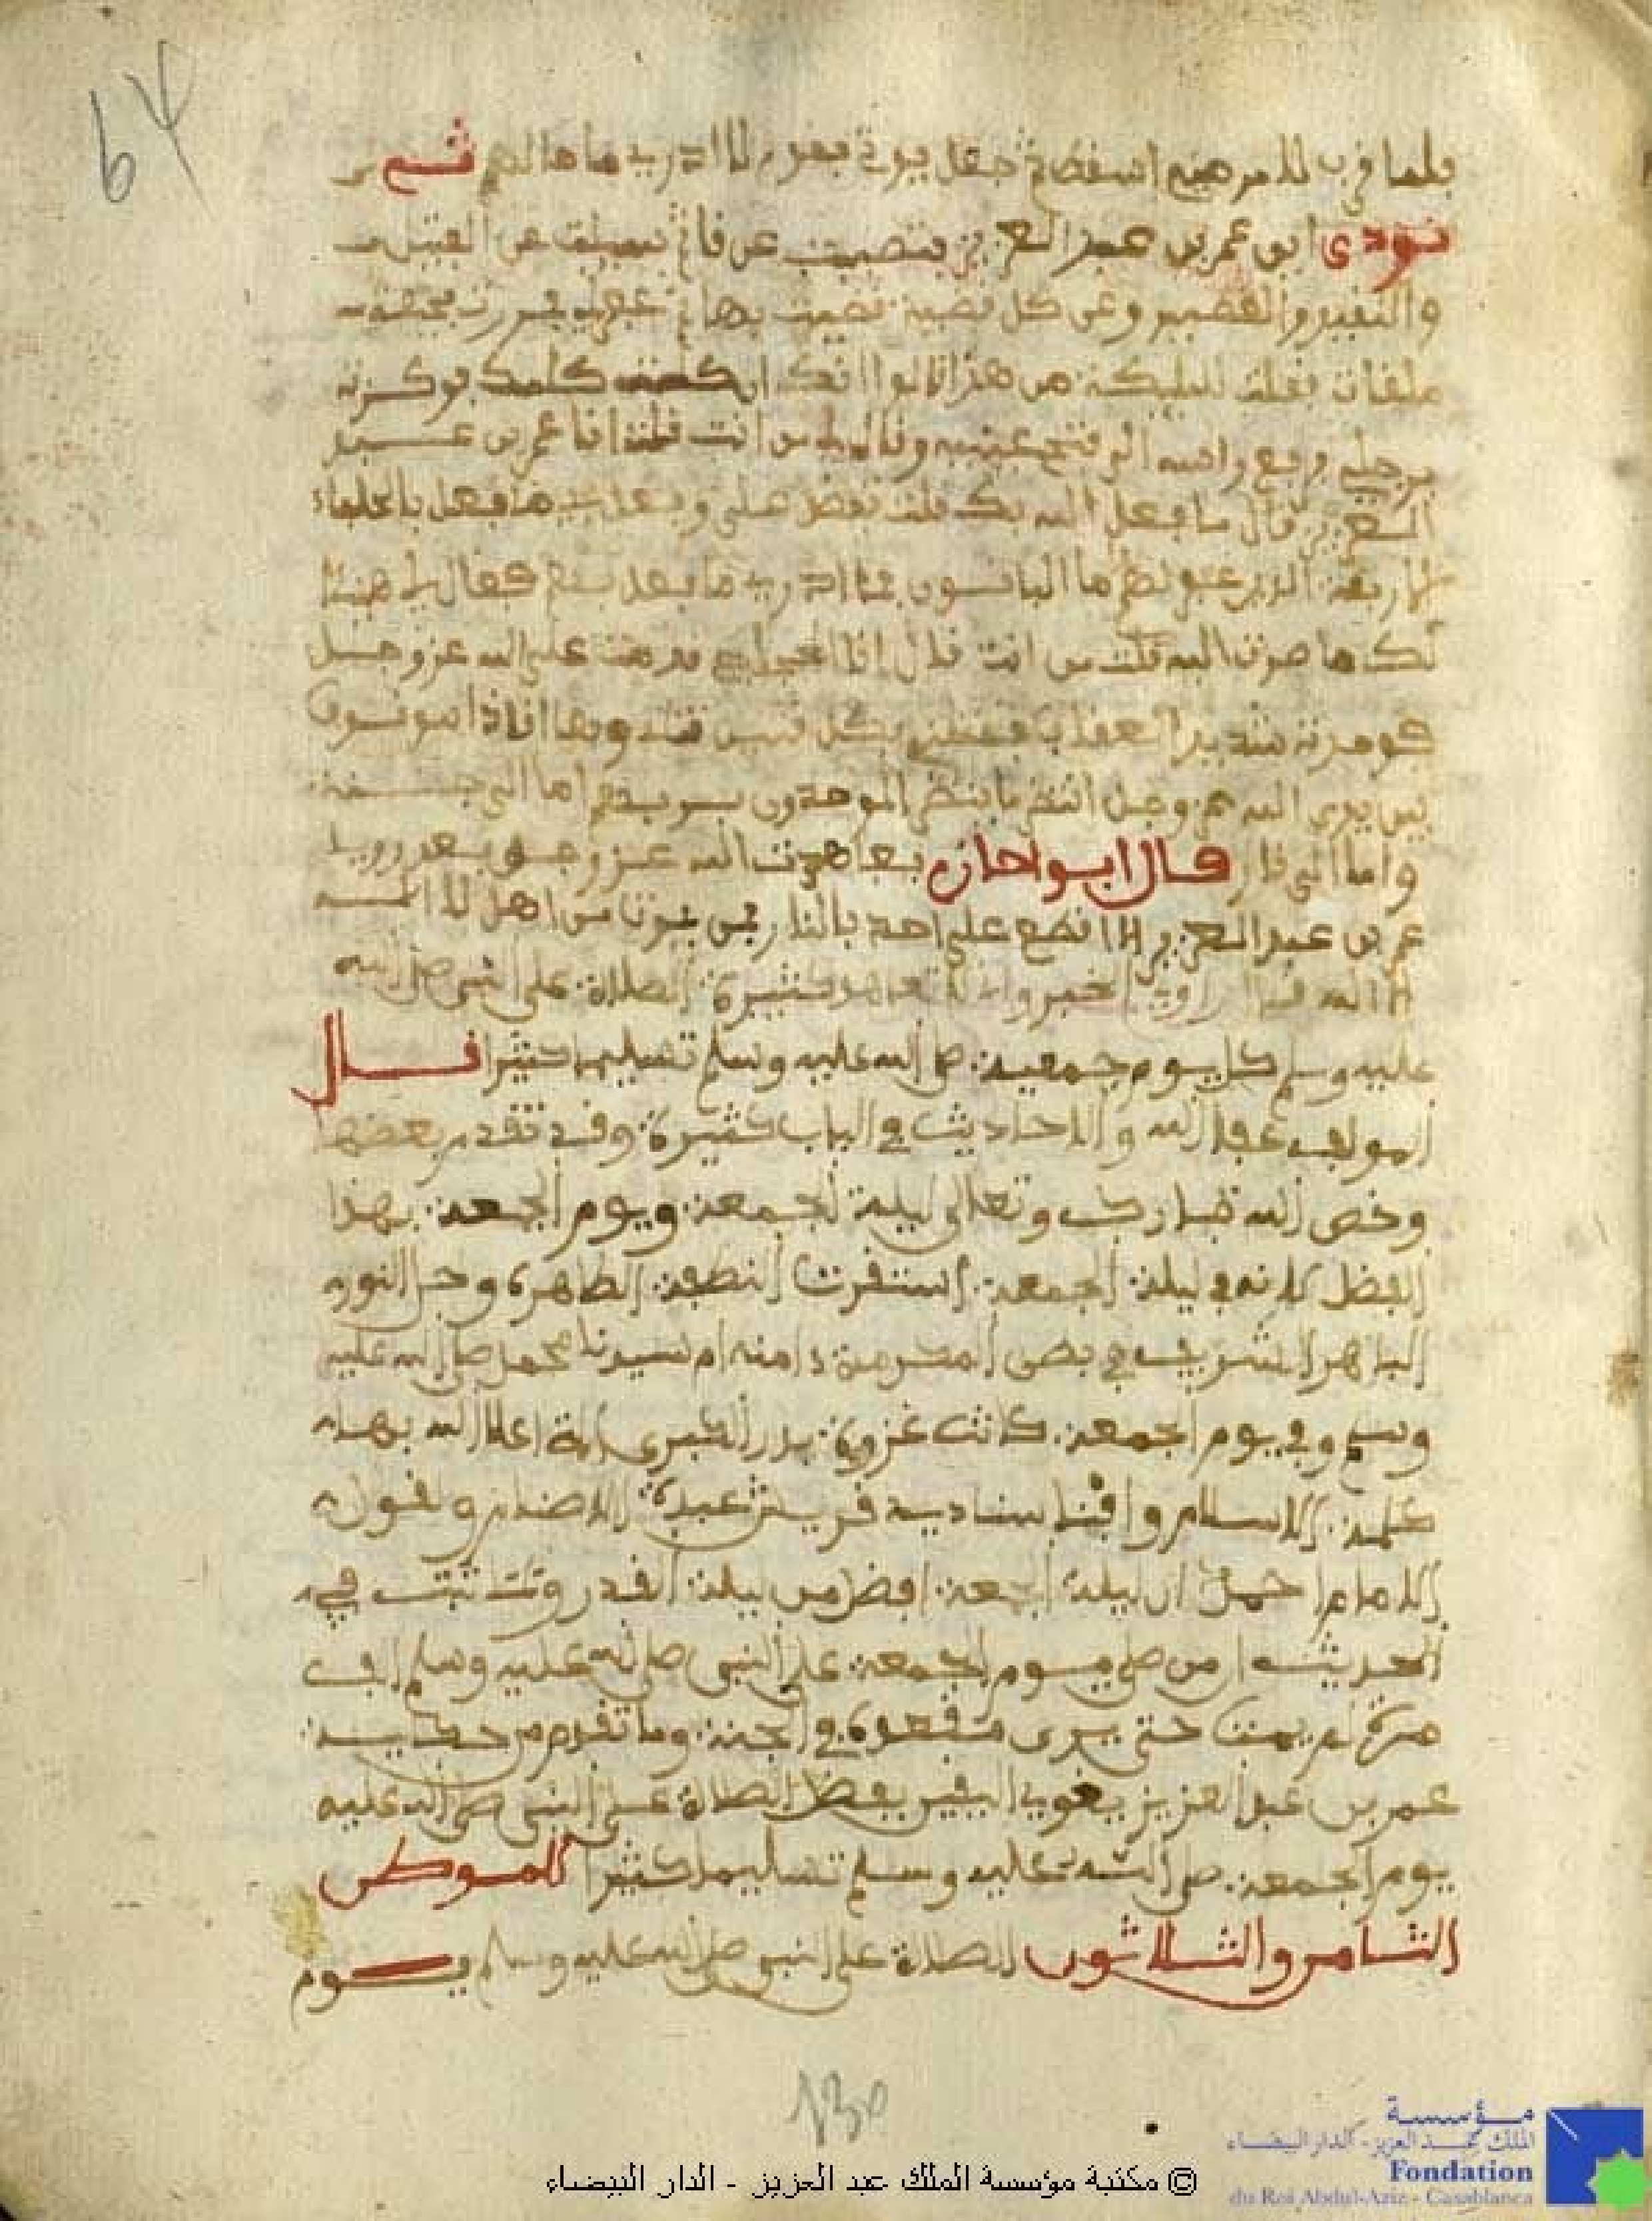 64
فلما قرب الامر مني اسقط في فقل يرق بقوم لا ادري ما هالهم ثم
نودي اين عمر بن عبد العزيز فتصببت عرقا ثم سيلت عن الفتيل
والنقير والقطمير وعن كل قضية قضيت بها ثم غفر لي فمررت بجيفة
ملقات فقلت للمليكة من هذا قالوا انك ان كلمته كلمك فوكزته
برجلي فرفع راسه الي وفتح عينيه وقال لي من انت قلت انا عمر بن عبد
العزيز قال ما فعل الله بك قلت تفضل علي وفعل بي ما فعل بالخلفاء
الاربعة الذين غفر لهم اما الباقون فما ادري ما فعل بهم فقال لي هنيئا
لك ما صرت اليه قلت من انت قال انا الحجاج قدمت على الله عز وجل
فوجدته شديد العقاب فقتلني بكل قتيل قتلة وها انا ذا موقوف
بين يدي الله عز وجل انتظر ما ينتظر الموحدون من ربهم اما الى جنة
واما الى نار قال ابو احازم فعاهدت الله عز وجل بعد رويا
عمر بن عبد العزيز الا اقطع على احد بالنار ممن يموت من اهل لا اله
الا الله قال راوي الخبر وانه تعاهد كثيرة الصلاة على النبي صلى الله
عليه وسلم كل يوم جمعية صلى الله عليه وسلم تسليما كثيرا قال
المولف عفا الله والاحاديث في الباب كثيرة وقد تقدم بعضها
وخص الله تبارك وتعالى ليلة الجمعة ويوم الجمعة بهذا
الفضل لانه في ليلة الجمعة استقرت النطفة الطاهرة وحل النور
الباهر الشريف في بطن المكرمة ءامنه ام سيدنا محمد صلى الله عليه
وسلم وفي يوم الجمعة كانت غزوة بدر الكبرى التي اعلا الله بها
كلمة الاسلام وافنا صناديد قريش عبدة الاصنام ولقول
الامام احمد ان ليلة الجمعة افضل من ليلة القدر وثبت في
الحديث ان من صلى يوم الجمعة على النبي صلى الله عليه وسلم الف
مرة لم يمت حتى يرى مقعده في الجنة وما تقدم من حكاية
عمر بن عبد العزيز يغوي اليقين بفضل الصلاة على النبي صلى الله عليه
يوم الجمعة صلى الله عليه وسلم تسليما كثيرا الموطن
الثامن والثلاثون الصلاة على النبي صلى الله عليه وسلم يوم
130
مؤسسة
الملك عبد العزيز - الدار البيضاء
Fondation
du Roi Abdul-Aziz - Casablanca
© مكتبة مؤسسة الملك عبد العزيز - الدار البيضاء